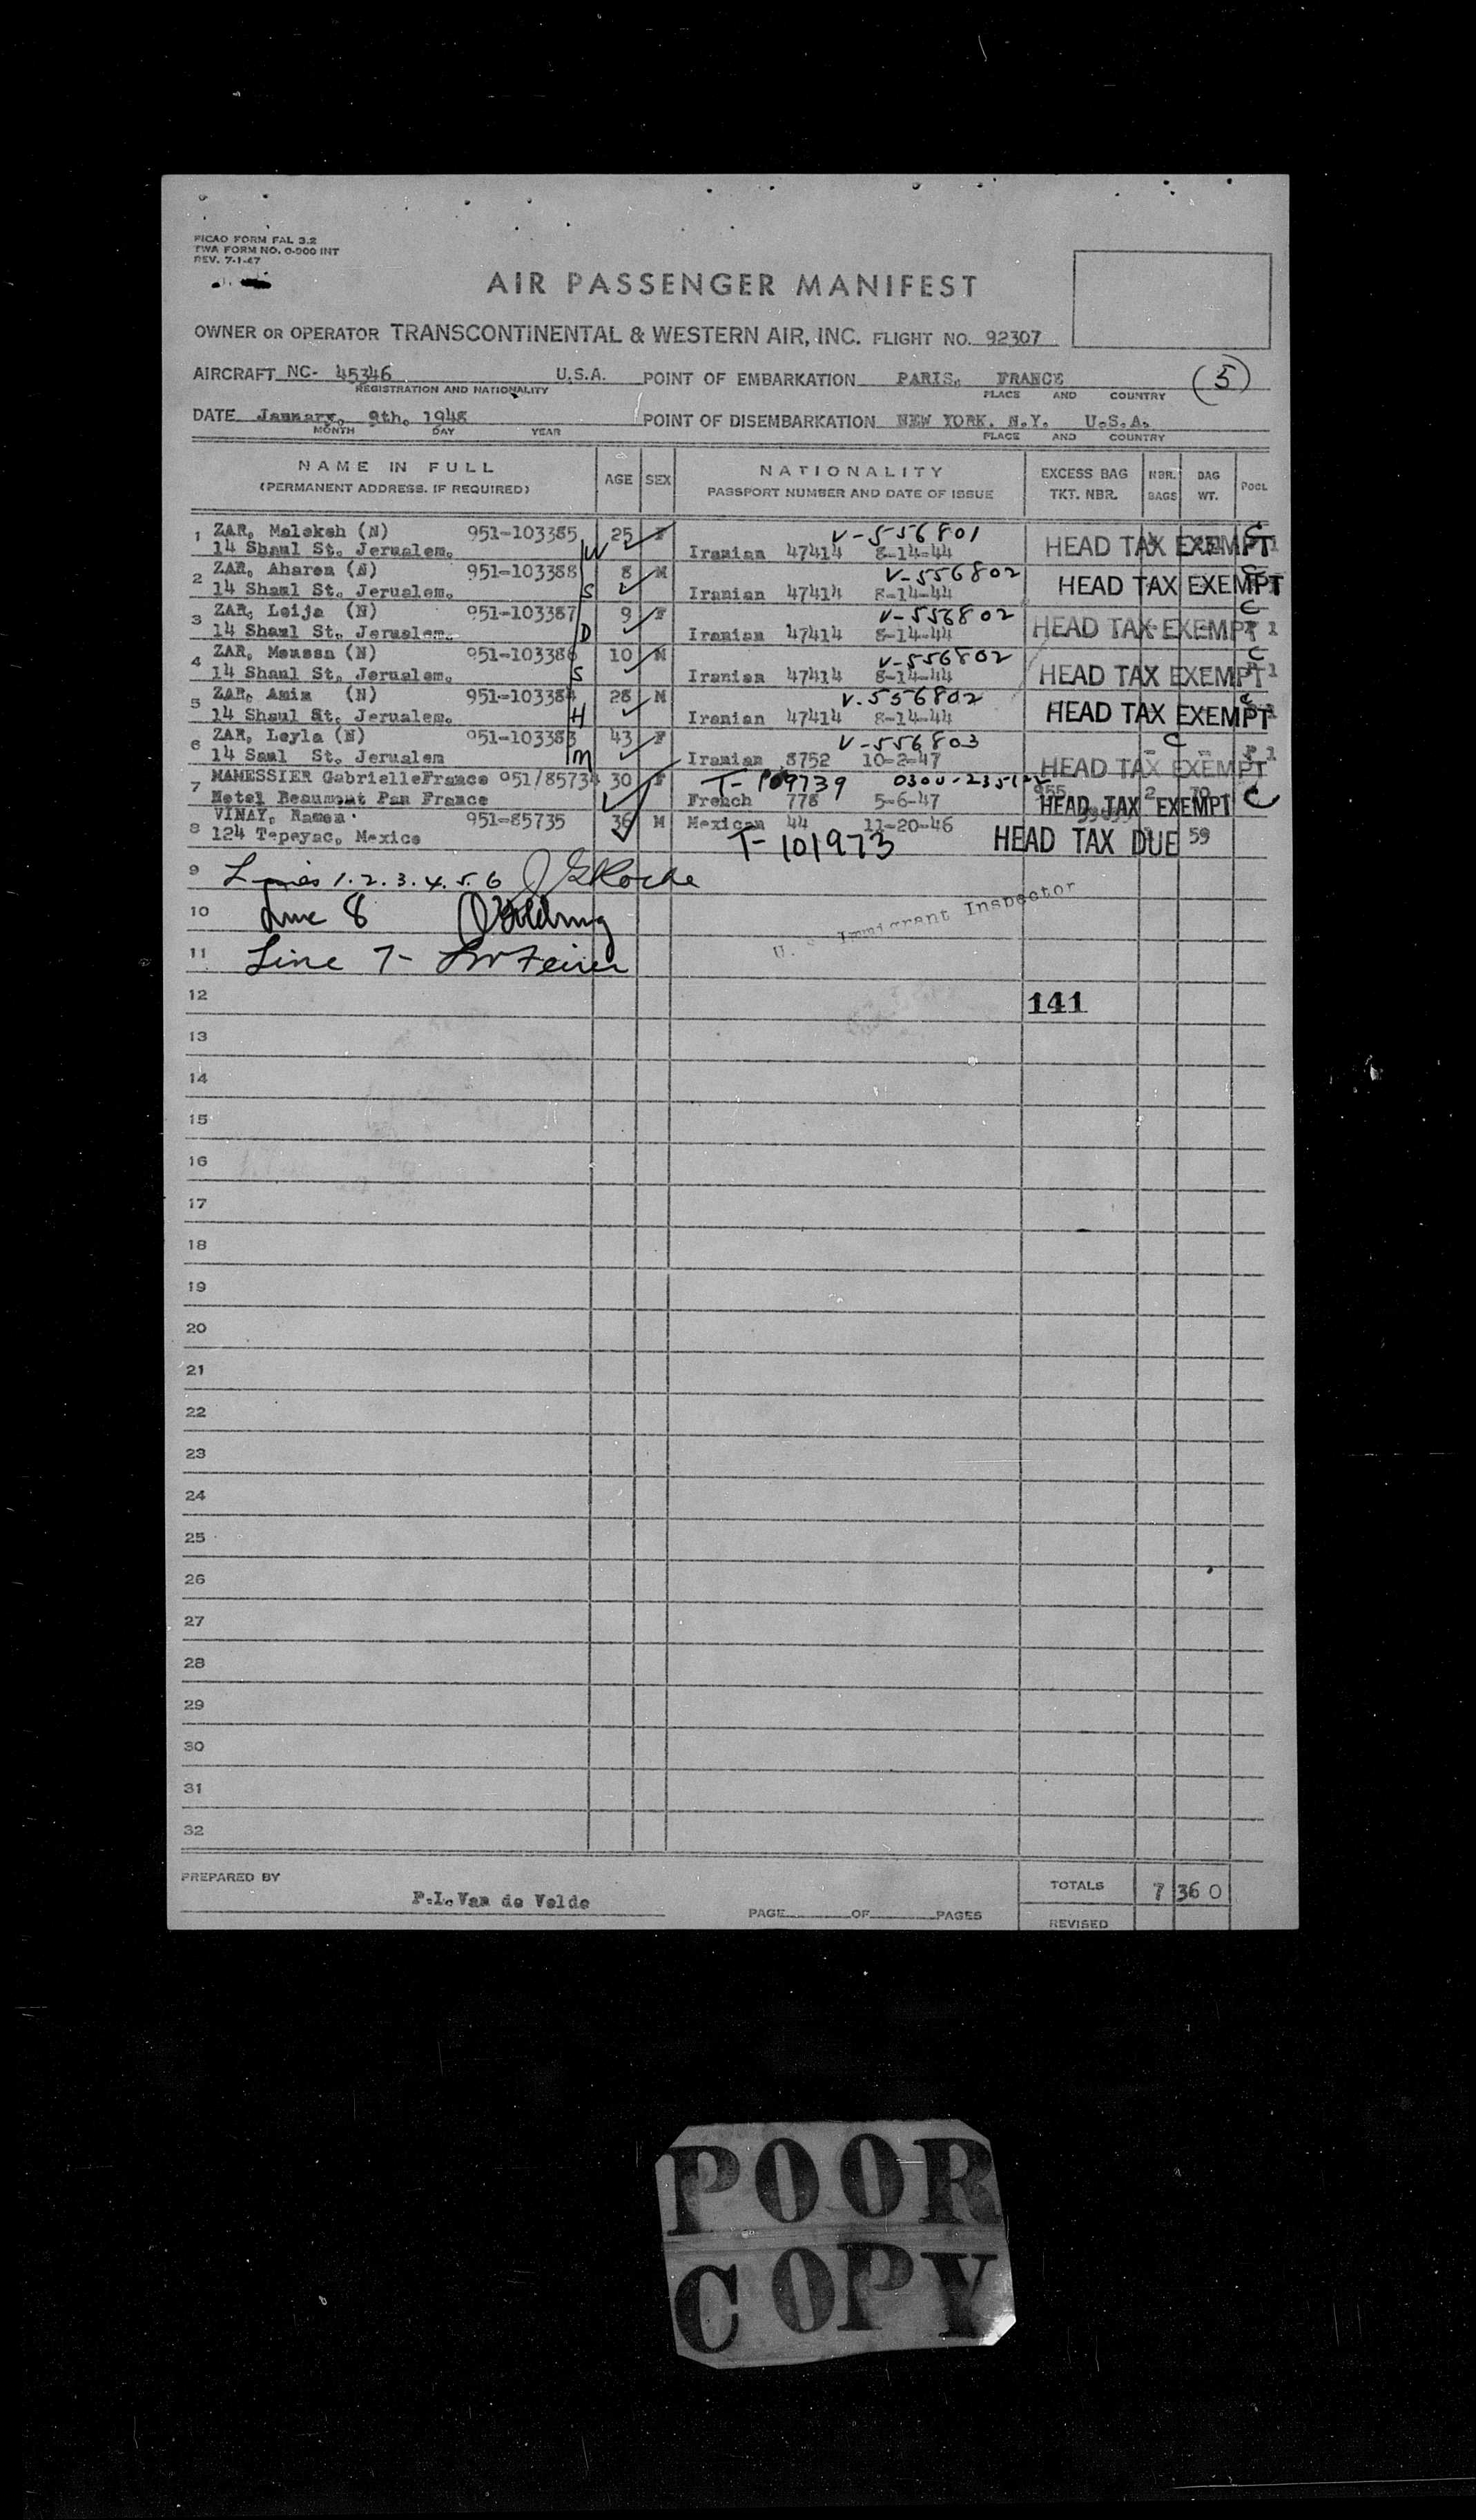 PICAO FORM FAL 3.2
TWA FORM NO. 0-900 INT
REV. 7-1-47
AIR PASSENGER MANIFEST
OWNER OR OPERATOR TRANSCONTINENTAL & WESTERN AIR, INC. FLIGHT NO. 92307
AIRCRAFT NC- 45346 U.S.A. POINT OF EMBARKATION PARIS, FRANCE (5)
REGISTRATION AND NATIONALITY PLACE AND COUNTRY
DATE January, 9th, 1948 POINT OF DISEMBARKATION NEW YORK, N.Y. U.S.A.
MONTH DAY YEAR PLACE AND COUNTRY
NAME IN FULL AGE SEX NATIONALITY EXCESS BAG NBR. BAG POOL
(PERMANENT ADDRESS, IF REQUIRED) PASSPORT NUMBER AND DATE OF ISSUE TKT. NBR. BAGS WT.
1 ZAR, Malekeh (N) 951-103385 25 F V-556801
14 Shaul St. Jerualem. W Iranian 47414 8-14-44 HEAD TAX EXEMPT C
2 ZAR, Aharon (N) 951-103388 8 M V-556802
14 Shaul St. Jerualem. S Iranian 47414 8-14-44 HEAD TAX EXEMPT C
3 ZAR, Leija (N) 951-103387 9 F V-556802
14 Shaul St. Jerualem. D Iranian 47414 8-14-44 HEAD TAX EXEMPT C
4 ZAR, Moussa (N) 951-103386 10 M V-556802
14 Shaul St. Jerualem. S Iranian 47414 8-14-44 HEAD TAX EXEMPT C
5 ZAR, Amin (N) 951-103384 28 M V.556802
14 Shaul St. Jerualem. H Iranian 47414 8-14-44 HEAD TAX EXEMPT C
6 ZAR, Leyla (N) 951-103383 43 F V-556803 C
14 Saul St. Jerualem M Iranian 8752 10-2-47 HEAD TAX EXEMPT
7 MAMESSIER GabrielleFrance 951/85734 30 F T-109739 0300-235122 955 2 70
Hotel Beaumont Pau France French 778 5-6-47 HEAD TAX EXEMPT C
8 VINAY, Ramon 951-85735 36 M Mexican 44 11-20-46
124 Tepeyac, Mexico T-101973 HEAD TAX DUE 59
9 Lines 1.2.3.4.5.6 J G Roche
10 Line 8
U.S. Immigrant Inspector
11 Line 7-
12 141
13
14
15
16
17
18
19
20
21
22
23
24
25
26
27
28
29
30
31
32
PREPARED BY TOTALS 7 360
P.I. Van de Velde
PAGE OF PAGES REVISED
POOR
COPY